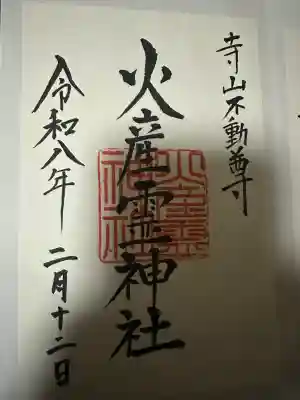 寺山不動尊
火産霊神社
令和八年 二月十二日